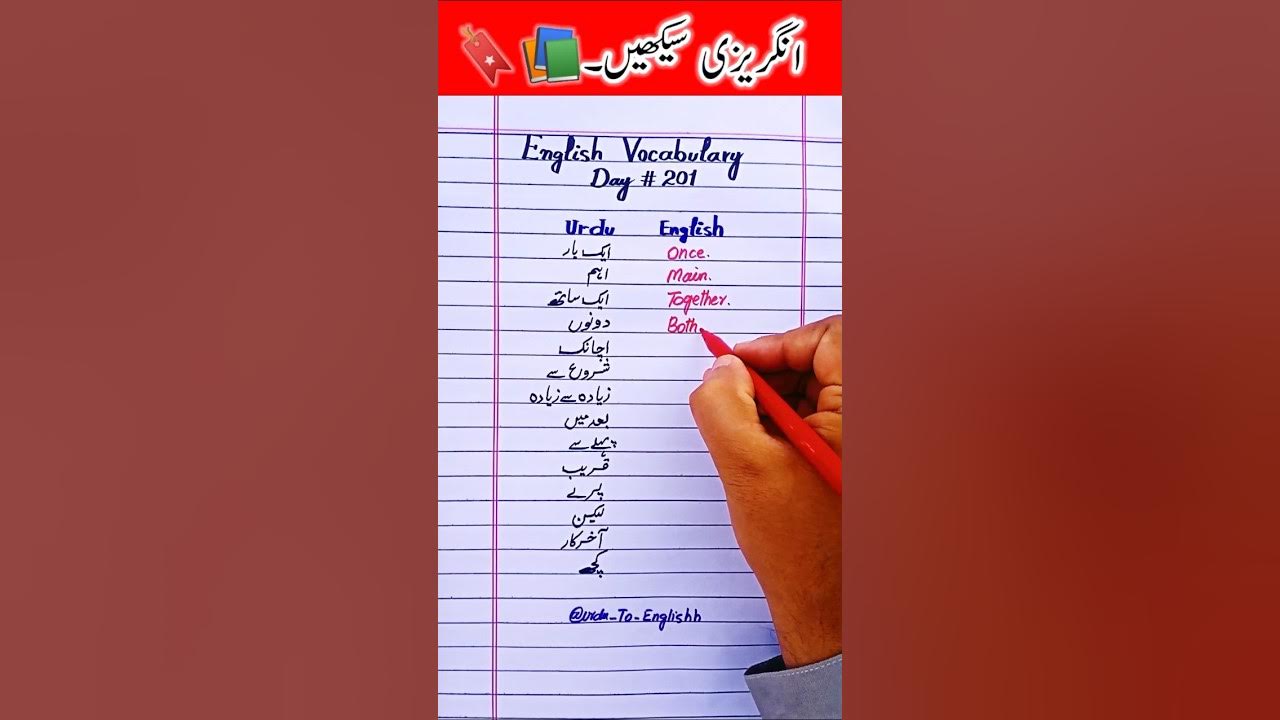 انگریزی سیکھیں۔
English Vocabulary
Day # 201
Urdu English
ایک بار Once.
اہم Main.
ایک ساتھ Together.
دونوں Both.
اچانک
شروع سے
زیادہ سے زیادہ
بعد میں
پہلے سے
قریب
پرے
لیکن
آخر کار
کچھ
@urdu_To_Englishh